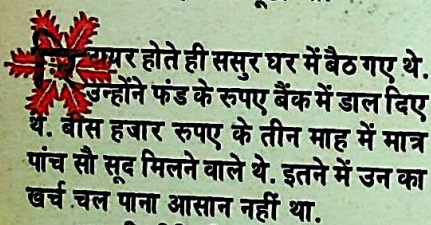 रिटायर होते ही ससुर घर में बैठ गए थे.
उन्होंने फंड के रुपए बैंक में डाल दिए
थे. बीस हजार रुपए के तीन माह में मात्र
पांच सौ सूद मिलने वाले थे. इतने में उन का
खर्च चल पाना आसान नहीं था.